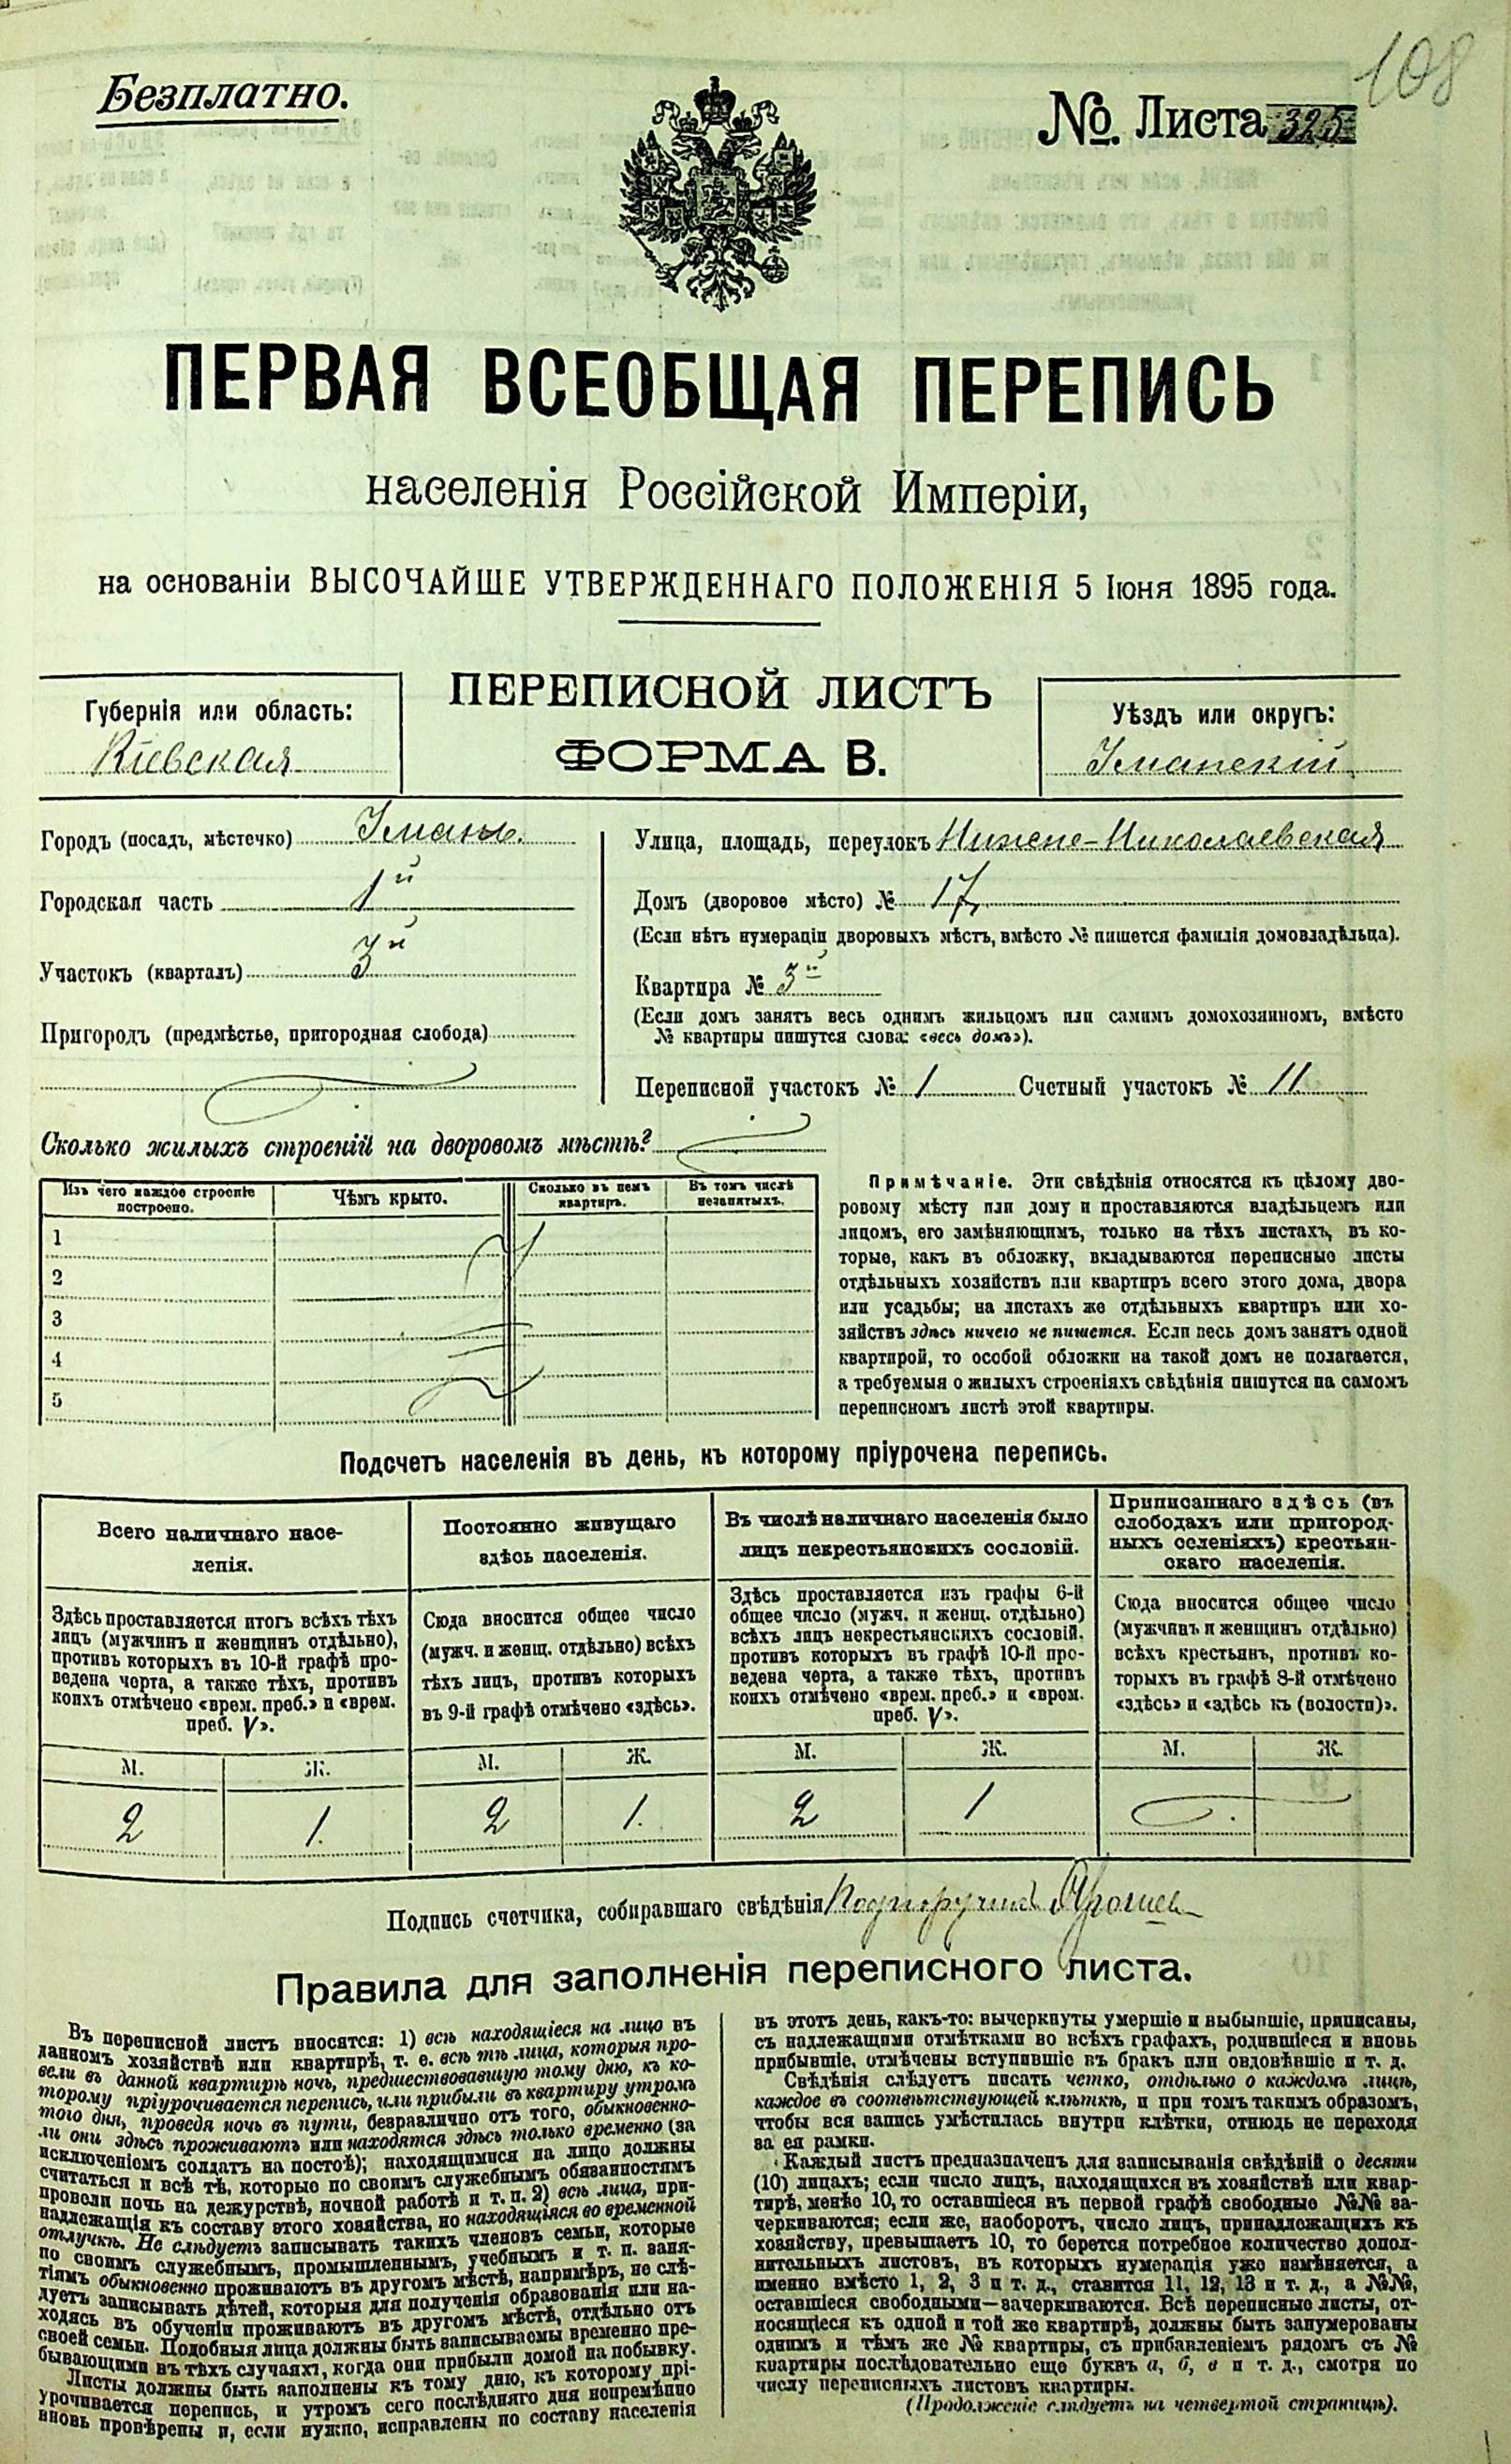 108
Безплатно.
№. Листа 325
ПЕРВАЯ ВСЕОБЩАЯ ПЕРЕПИСЬ
населенія Россійской Имперіи,
на основаніи ВЫСОЧАЙШЕ УТВЕРЖДЕННАГО ПОЛОЖЕНІЯ 5 Іюня 1895 года.
ПЕРЕПИСНОЙ ЛИСТЪ
ФОРМА В.
Губернія или область:
Кіевская
Уѣздъ или округъ:
Уманскій
Городъ (посадъ, мѣстечко) Умань.
Городская часть 1й
Участокъ (кварталъ) 3й
Пригородъ (предмѣстье, пригородная слобода)
Улица, площадь, переулокъ Нижне-Николаевская
Домъ (дворовое мѣсто) № 17
(Если нѣтъ нумераціи дворовыхъ мѣстъ, вмѣсто № пишется фамилія домовладѣльца).
Квартира № 3й
(Если домъ занятъ весь однимъ жильцомъ или самимъ домохозяиномъ, вмѣсто
№ квартиры пишутся слова: «весь домъ»).
Переписной участокъ № 1 Счетный участокъ № 11
Сколько жилыхъ строеній на дворовомъ мѣстѣ?
Изъ чего каждое строеніе
построено.
Чѣмъ крыто.
Сколько въ немъ
квартиръ.
Въ томъ числѣ
незанятыхъ.
1
2
3
4
5
Примѣчаніе. Эти свѣдѣнія относятся къ цѣлому дво-
ровому мѣсту или дому и проставляются владѣльцемъ или
лицомъ, его замѣняющимъ, только на тѣхъ листахъ, въ ко-
торые, какъ въ обложку, вкладываются переписные листы
отдѣльныхъ хозяйствъ или квартиръ всего этого дома, двора
или усадьбы; на листахъ же отдѣльныхъ квартиръ или хо-
зяйствъ здѣсь ничего не пишется. Если весь домъ занятъ одной
квартирой, то особой обложки на такой домъ не полагается,
а требуемыя о жилыхъ строеніяхъ свѣдѣнія пишутся на самомъ
переписномъ листѣ этой квартиры.
Подсчетъ населенія въ день, къ которому пріурочена перепись.
Всего наличнаго насе-
ленія.
Здѣсь проставляется итогъ всѣхъ тѣхъ
лицъ (мужчинъ и женщинъ отдѣльно),
противъ которыхъ въ 10-й графѣ про-
ведена черта, а также тѣхъ, противъ
коихъ отмѣчено «врем. преб.» и «врем.
преб. V».
Постоянно живущаго
здѣсь населенія.
Сюда вносится общее число
(мужч. и женщ. отдѣльно) всѣхъ
тѣхъ лицъ, противъ которыхъ
въ 9-й графѣ отмѣчено «здѣсь».
Въ числѣ наличнаго населенія было
лицъ некрестьянскихъ сословій.
Здѣсь проставляется изъ графы 6-й
общее число (мужч. и женщ. отдѣльно)
всѣхъ лицъ некрестьянскихъ сословій,
противъ которыхъ въ графѣ 10-й про-
ведена черта, а также тѣхъ, противъ
коихъ отмѣчено «врем. преб.» и «врем.
преб. V».
Приписаннаго здѣсь (въ
слободахъ или пригород-
ныхъ селеніяхъ) крестьян-
скаго населенія.
Сюда вносится общее число
(мужчинъ и женщинъ отдѣльно)
всѣхъ крестьянъ, противъ ко-
торыхъ въ графѣ 8-й отмѣчено
«здѣсь» и «здѣсь къ (волости)».
М. Ж. М. Ж. М. Ж. М. Ж.
2 1. 2 1. 2 1
Подпись счетчика, собиравшаго свѣдѣнія Подпоручик
Правила для заполненія переписного листа.
Въ переписной листъ вносятся: 1) всѣ находящіеся на лицо въ
данномъ хозяйствѣ или квартирѣ, т. е. всѣ тѣ лица, которыя про-
вели въ данной квартирѣ ночь, предшествовавшую тому дню, къ ко-
торому пріурочивается перепись, или прибыли въ квартиру утромъ
того дня, проведя ночь въ пути, безразлично отъ того, обыкновенно-
ли они здѣсь проживаютъ или находятся здѣсь только временно (за
исключеніемъ солдатъ на постоѣ); находящимися на лицо должны
считаться и всѣ тѣ, которые по своимъ служебнымъ обязанностямъ
провели ночь на дежурствѣ, ночной работѣ и т. п. 2) всѣ лица, при-
надлежащія къ составу этого хозяйства, но находящіяся во временной
отлучкѣ. Не слѣдуетъ записывать такихъ членовъ семьи, которые
по своимъ служебнымъ, промышленнымъ, учебнымъ и т. п. заня-
тіямъ обыкновенно проживаютъ въ другомъ мѣстѣ, напримѣръ, не слѣ-
дуетъ записывать дѣтей, которыя для полученія образованія или на-
ходясь въ обученіи проживаютъ въ другомъ мѣстѣ, отдѣльно отъ
своей семьи. Подобныя лица должны быть записываемы временно пре-
бывающими въ тѣхъ случаяхъ, когда они прибыли домой на побывку.
Листы должны быть заполнены къ тому дню, къ которому прі-
урочивается перепись, и утромъ сего послѣдняго дня непремѣнно
вновь провѣрены и, если нужно, исправлены по составу населенія
въ этотъ день, какъ-то: вычеркнуты умершіе и выбывшіе, приписаны,
съ надлежащими отмѣтками во всѣхъ графахъ, родившіеся и вновь
прибывшіе, отмѣчены вступившіе въ бракъ или овдовѣвшіе и т. д.
Свѣдѣнія слѣдуетъ писать четко, отдѣльно о каждомъ лицѣ,
каждое въ соотвѣтствующей клѣткѣ, и при томъ такимъ образомъ,
чтобы вся запись умѣстилась внутри клѣтки, отнюдь не переходя
за ея рамки.
Каждый листъ предназначенъ для записыванія свѣдѣній о десяти
(10) лицахъ; если число лицъ, находящихся въ хозяйствѣ или квар-
тирѣ, менѣе 10, то оставшіеся въ первой графѣ свободные №№ за-
черкиваются; если же, наоборотъ, число лицъ, принадлежащихъ къ
хозяйству, превышаетъ 10, то берется потребное количество допол-
нительныхъ листовъ, въ которыхъ нумерація уже измѣняется, а
именно вмѣсто 1, 2, 3 и т. д., ставится 11, 12, 13 и т. д., а №№,
оставшіеся свободными—зачеркиваются. Всѣ переписные листы, от-
носящіеся къ одной и той же квартирѣ, должны быть занумерованы
однимъ и тѣмъ же № квартиры, съ прибавленіемъ рядомъ съ №
квартиры послѣдовательно еще буквъ а, б, в и т. д., смотря по
числу переписныхъ листовъ квартиры.
(Продолженіе слѣдуетъ на четвертой страницѣ).